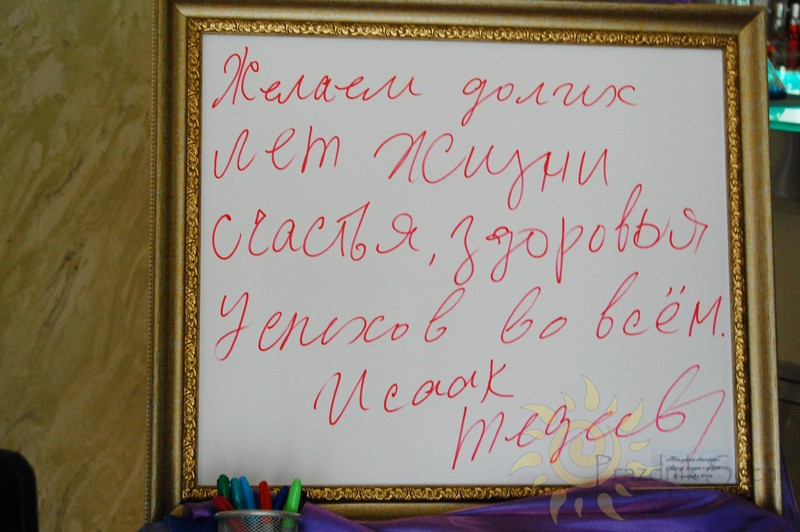 Желаем долгих
лет жизни
счастья, здоровья
Успехов во всём.
Исаак
Тедеев